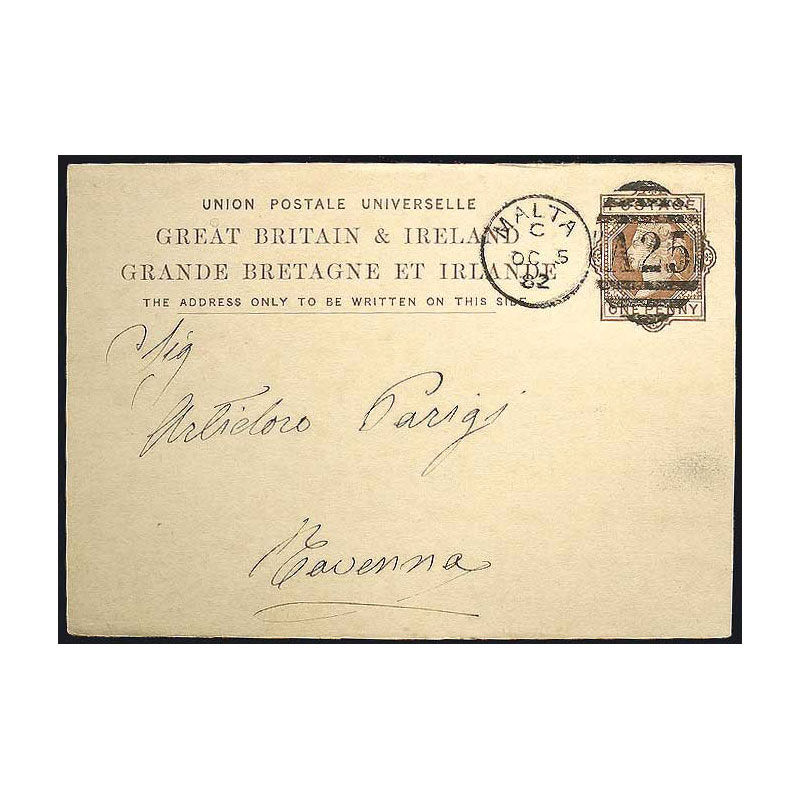 UNION POSTALE UNIVERSELLE
GREAT BRITAIN & IRELAND
GRANDE BRETAGNE ET IRLANDE
THE ADDRESS ONLY TO BE WRITTEN ON THIS SIDE
MALTA
C
OC 5
82
POSTAGE
A25
ONE PENNY
Sig
Artidoro Parigi
Ravenna